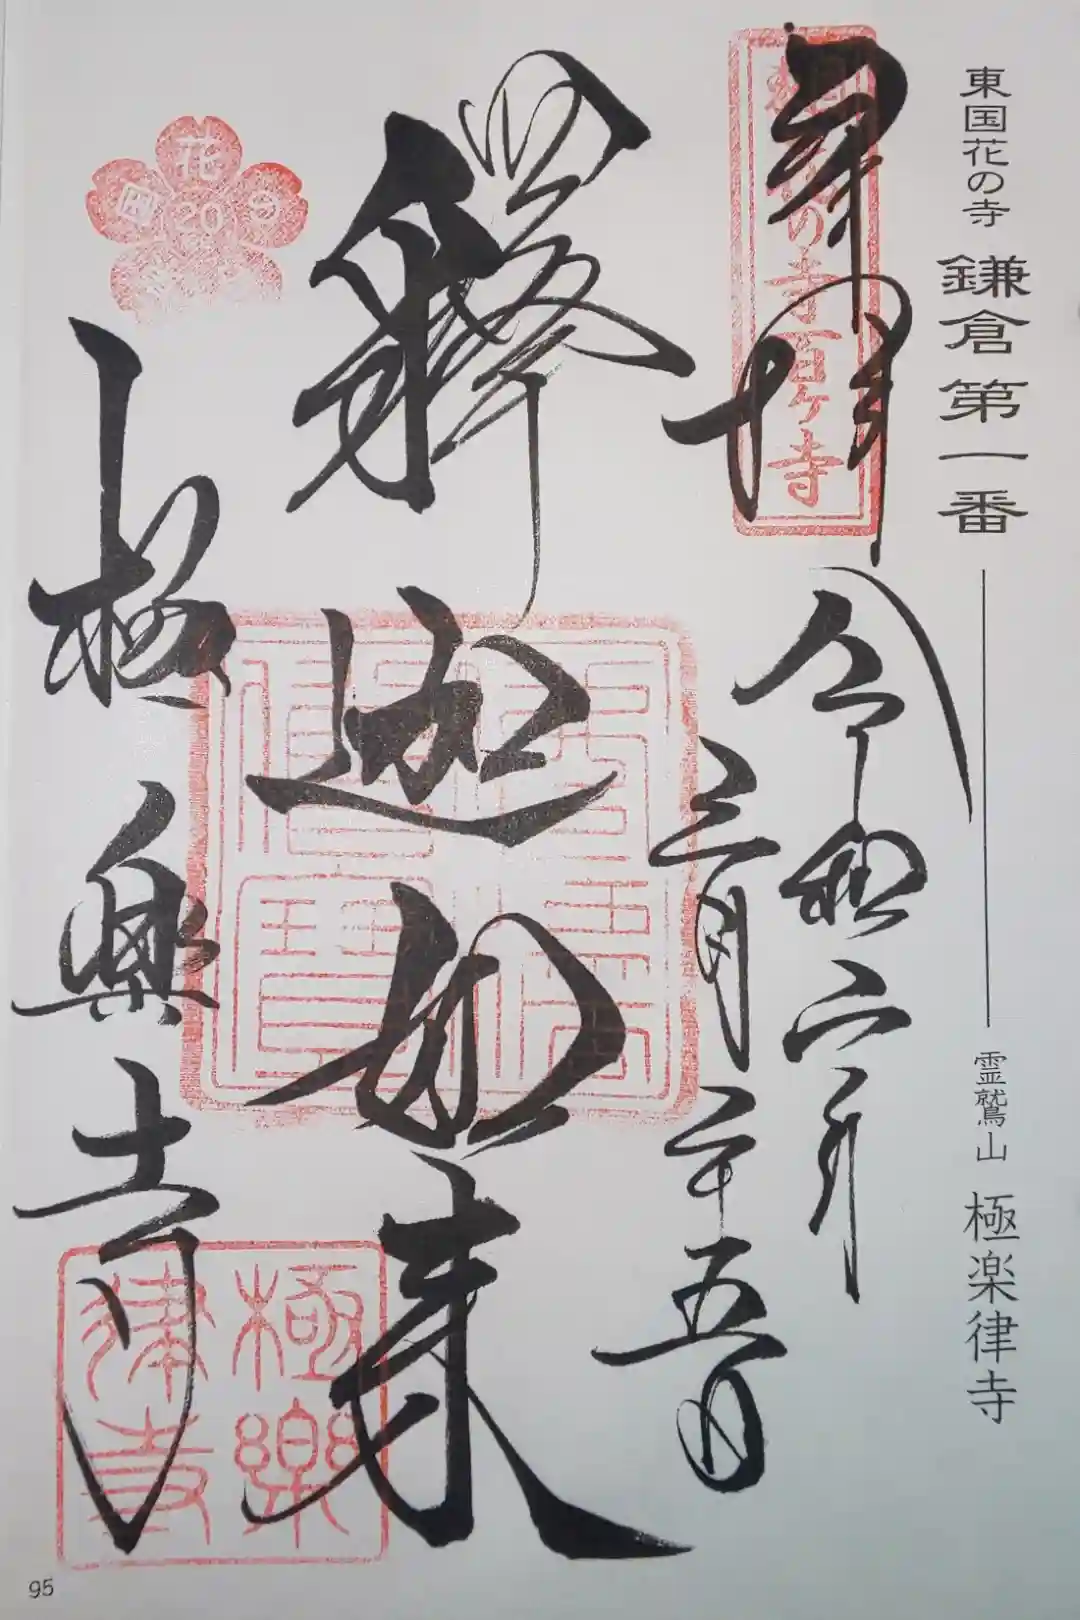 東国花の寺 鎌倉第一番 霊鷲山 極楽律寺
の寺百ヶ寺
奉拝
令和六年
三月二十五日
釋迦如来
極楽寺
花の
国
20
佛法僧寳
極樂
律寺
95